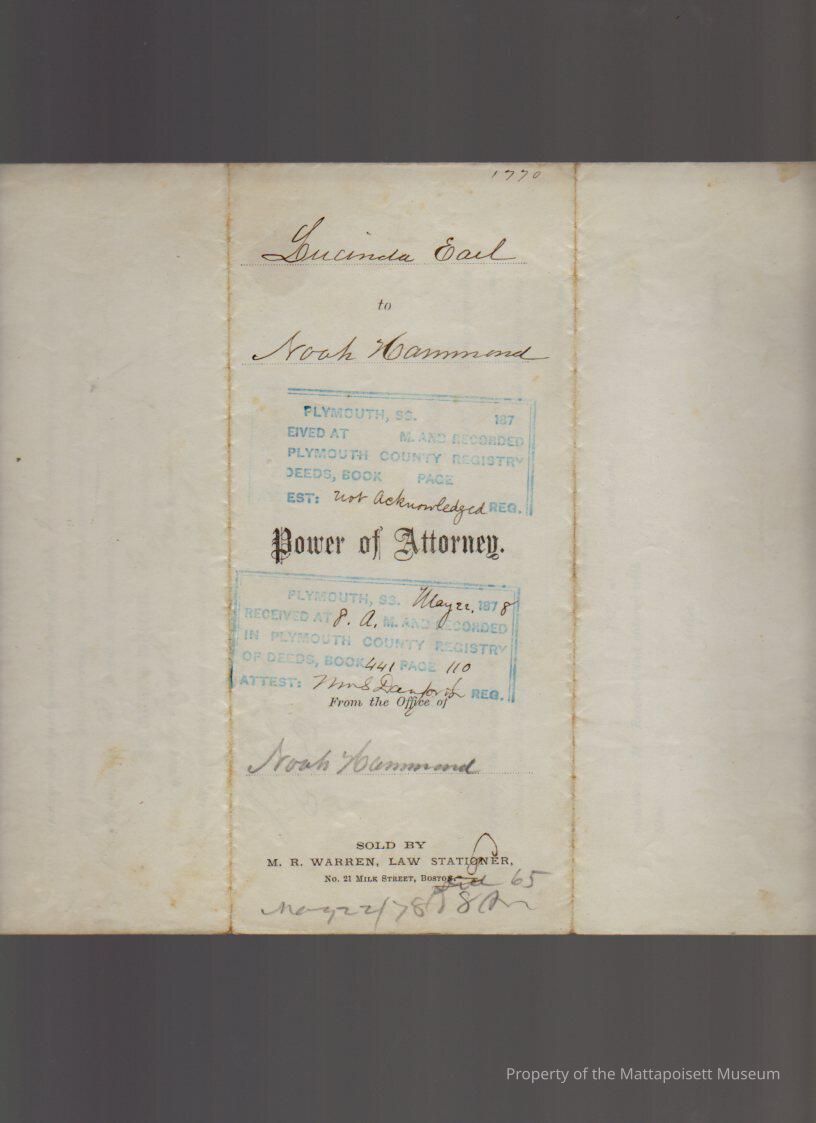 1770
Lucinda Earl
to
Noah Hammond
PLYMOUTH, SS. 187
EIVED AT M. AND RECORDED
PLYMOUTH COUNTY REGISTRY
DEEDS, BOOK PAGE
EST: not Acknowledged REG.
Power of Attorney.
PLYMOUTH, SS. May 22, 1878
RECEIVED AT 8. A. M. AND RECORDED
IN PLYMOUTH COUNTY REGISTRY
OF DEEDS, BOOK 441 PAGE 110
ATTEST: Wm S Danforth REG.
From the Office of
Noah Hammond
SOLD BY
M. R. WARREN, LAW STATIONER,
No. 21 MILK STREET, BOSTON.
65
May 22/78 8 Am
Property of the Mattapoisett Museum